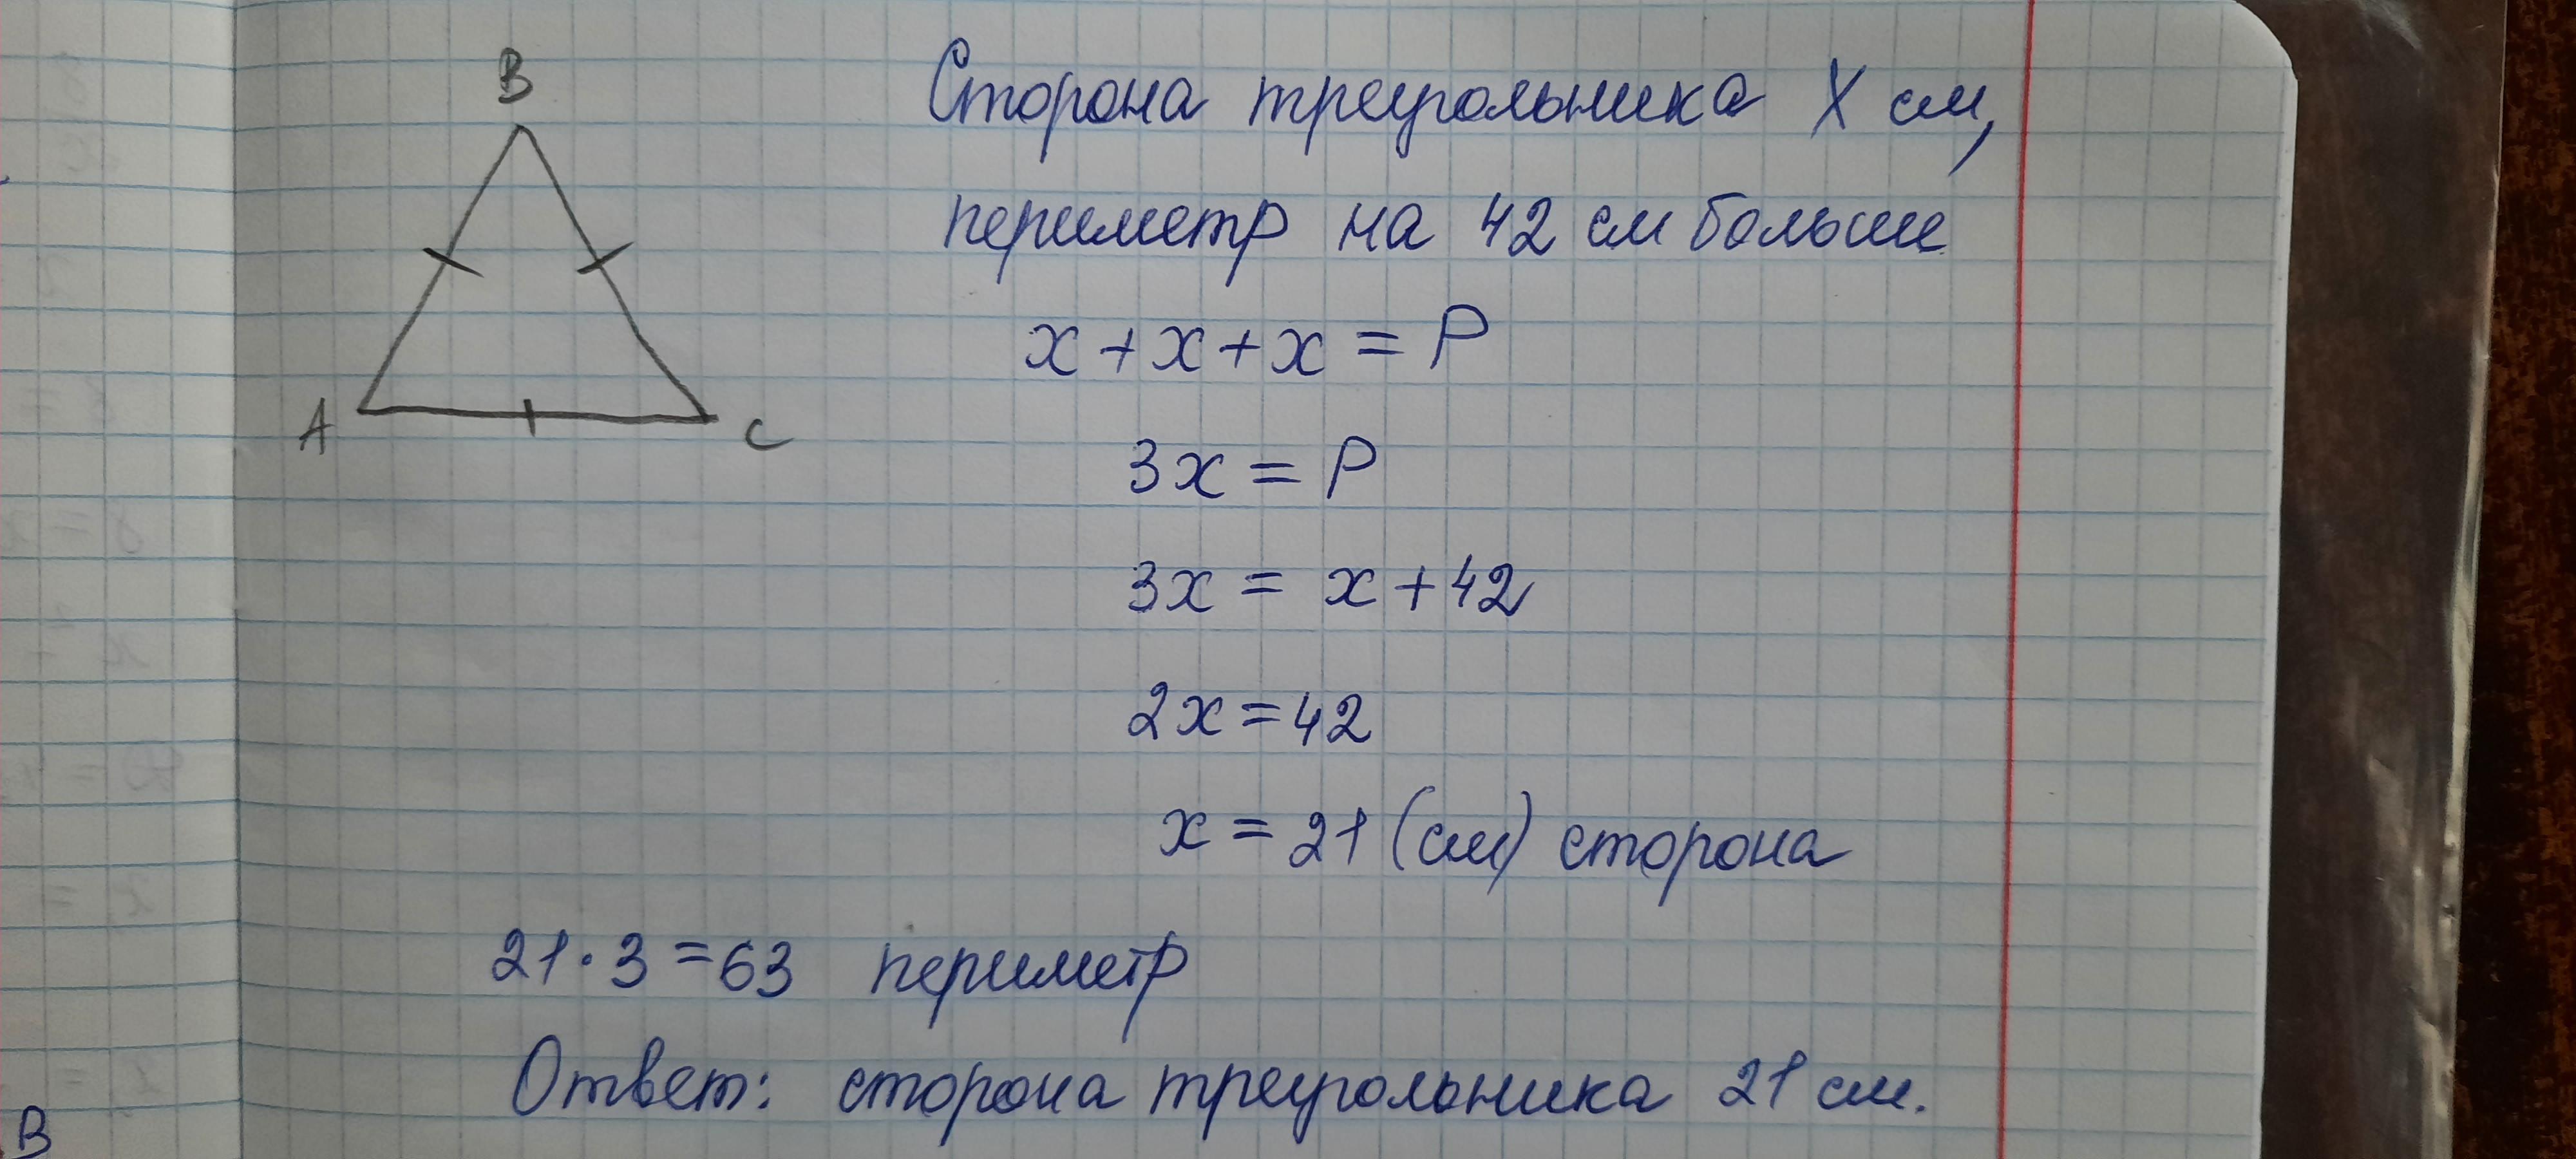 B
A
C
Сторона треугольника X см,
периметр на 42 см больше
x + x + x = P
3x = P
3x = x + 42
2x = 42
x = 21 (см) сторона
21 · 3 = 63 периметр
Ответ: сторона треугольника 21 см.
B